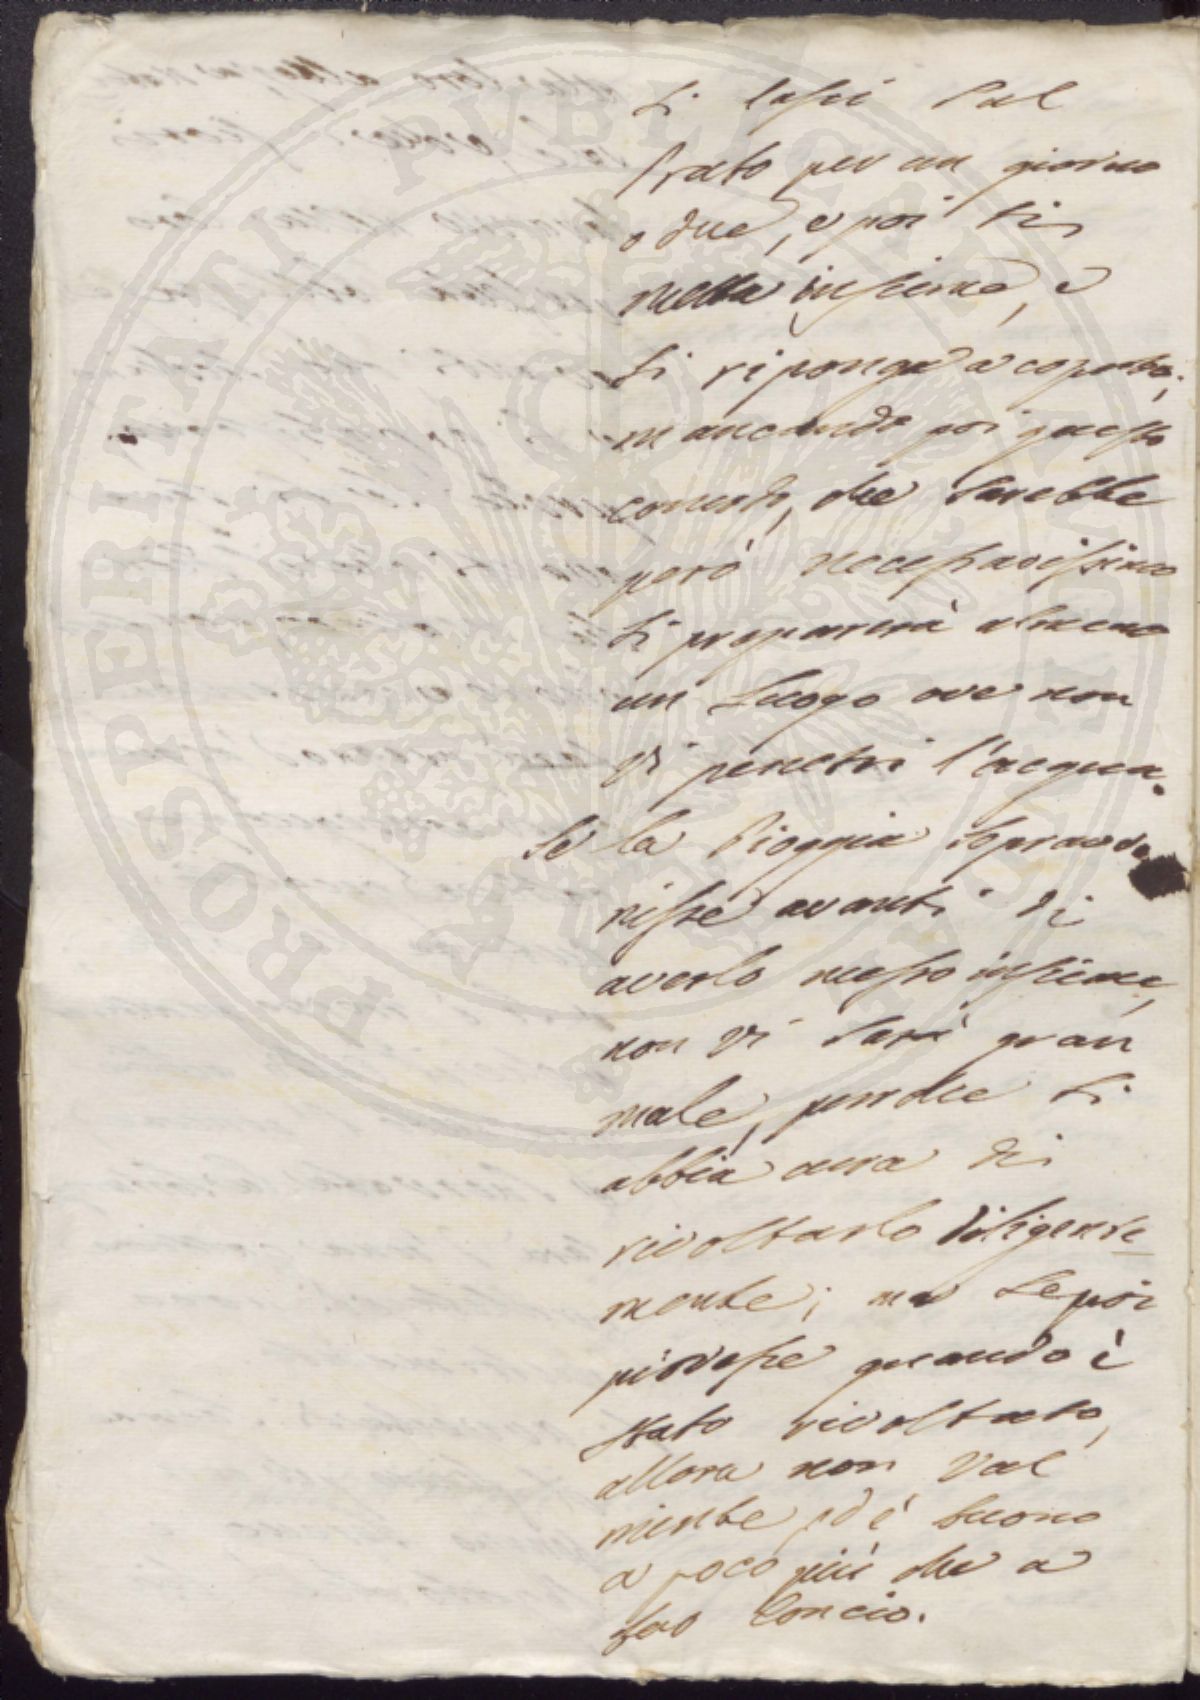 si lasci sul
Prato per un giorno
o due, e poi si
metta insieme, e
si riponga a coperto;
mancando poi questo
comodo, che sarebbe
però necessarissimo
si preparerà almeno
un luogo ove non
vi penetri l'acqua.
Se la Pioggia sopravve
nisse avanti di
averlo messo insieme,
non vi sarà gran
male, perchè si
abbia cura di
rivoltarlo diligente
mente; ma se poi
piovesse quando è
stato rivoltato,
allora non val
niente ed è buono
a poco più che a
far Concio.
PROSPERITATI PVBLICAE AVGENDAE